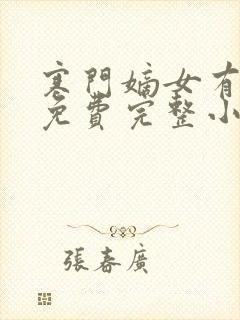 寒門嫡女有
免費完整小
張春廣